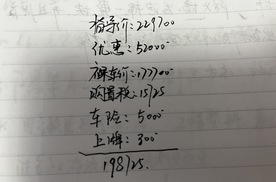 指导价:229700
优惠:52000
裸车价:177700
购置税:15125
车险:5000
上牌:300
198125.